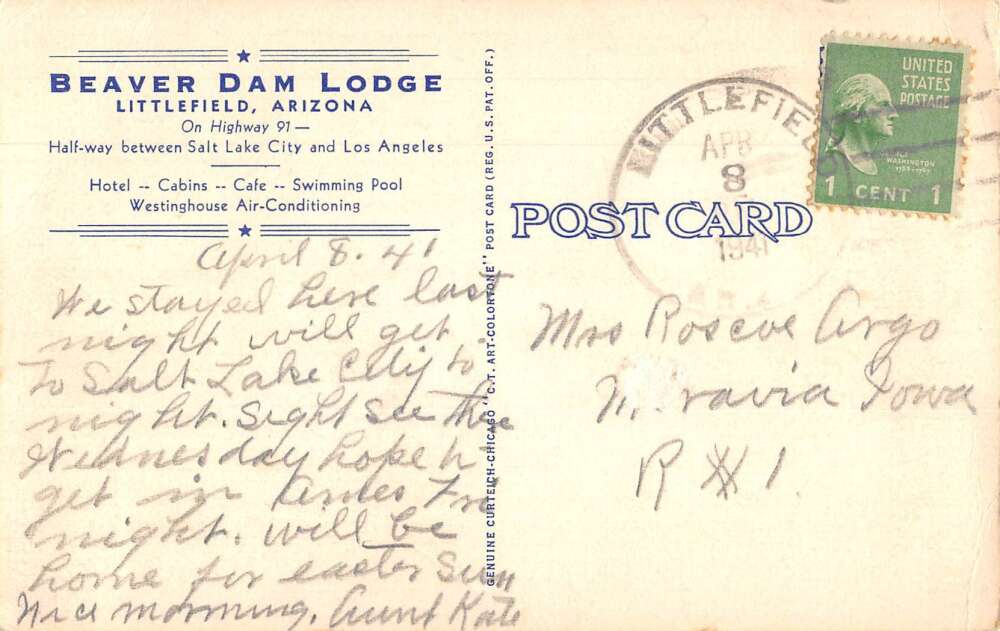 BEAVER DAM LODGE
LITTLEFIELD, ARIZONA
On Highway 91 —
Half-way between Salt Lake City and Los Angeles
Hotel -- Cabins -- Cafe -- Swimming Pool
Westinghouse Air-Conditioning
April 8. 41
We stayed here last
night will get
To Salt Lake City to
night. Sight See There
Wednesday hope to
get in Ames Fri
night. will be
home for easter Sun
Nice morning. Aunt Kate
GENUINE CURTEICH-CHICAGO "C.T. ART-COLORTONE" POST CARD (REG. U.S. PAT. OFF.)
POST CARD
LITTLEFIEL
APR
8
1941
ARIZ.
UNITED
STATES
POSTAGE
WASHINGTON
1789-1797
1 CENT 1
Mrs Roscoe Argo
Moravia Iowa
R #1.